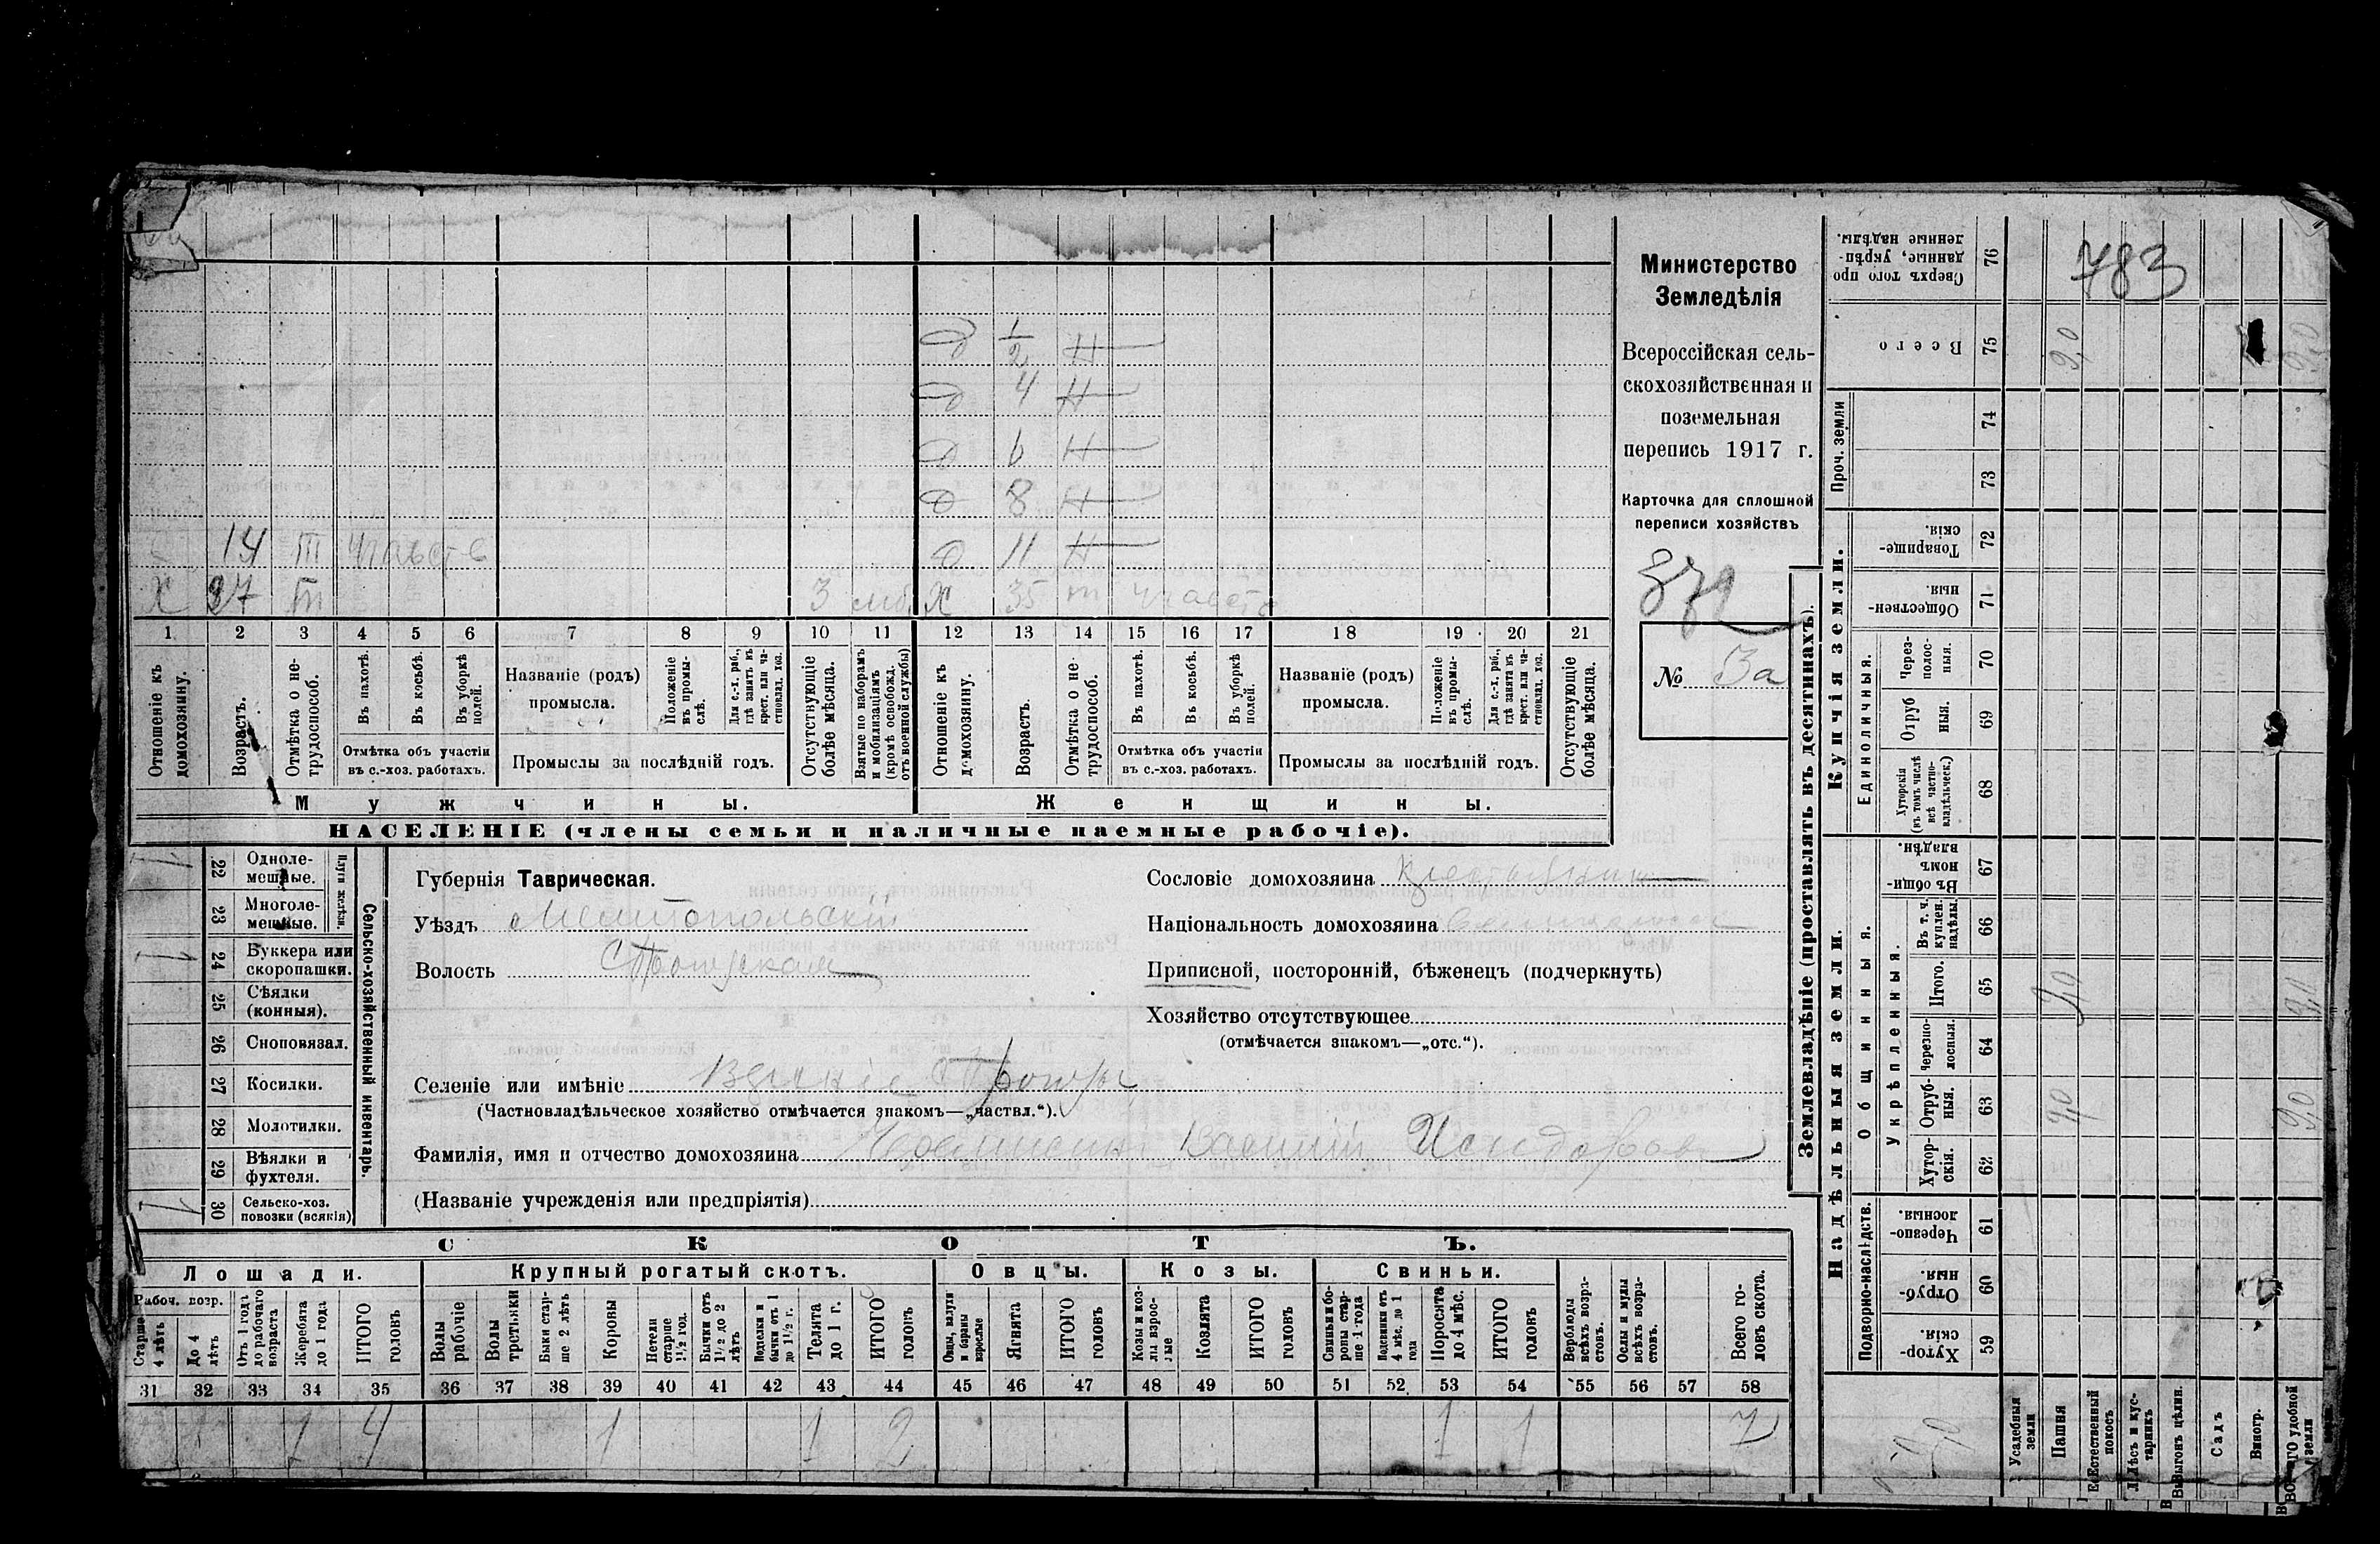 783
Министерство
Земледѣлія
Всероссійская сель-
скохозяйственная и
поземельная
перепись 1917 г.
Карточка для сплошной
переписи хозяйствъ
№ 3а
д 1/2 Н
д 4 Н
д 6 Н
д 8 Н
14 т участ д 11 Н
х 37 т 3 моб. х 35 т участ
1 2 3 4 5 6 7 8 9 10 11 12 13 14 15 16 17 18 19 20 21
Отношеніе къ домохозяину.
Возрастъ.
Отмѣтка о не-трудоспособ.
Въ пахотѣ.
Въ косьбѣ.
Въ уборкѣ полей.
Отмѣтка объ участіи въ с.-хоз. работахъ.
Названіе (родъ) промысла.
Положеніе въ промы-слѣ.
Для с.-х. раб., гдѣ занятъ въ крест. или ча-стновлад. хоз.
Промыслы за послѣдній годъ.
Отсутствующіе болѣе мѣсяца.
Взятые по наборамъ и мобилизаціямъ (кромѣ освобожд. отъ военной службы)
Отношеніе къ домохозяину.
Возрастъ.
Отмѣтка о не-трудоспособ.
Въ пахотѣ.
Въ косьбѣ.
Въ уборкѣ полей.
Отмѣтка объ участіи въ с.-хоз. работахъ.
Названіе (родъ) промысла.
Положеніе въ промы-слѣ.
Для с.-х. раб., гдѣ занята въ крест. или ча-стновлад. хоз.
Промыслы за послѣдній годъ.
Отсутствующіе болѣе мѣсяца.
Мужчины. Женщины.
НАСЕЛЕНІЕ (члены семьи и наличные наемные рабочіе).
Сельско-хозяйственный инвентарь.
Плуги желѣзн.
1 22 Одноле-мешные.
23 Многоле-мешные.
1 24 Буккера или скоропашки.
25 Сѣялки (конныя).
26 Сноповязал.
27 Косилки.
28 Молотилки.
29 Вѣялки и фухтеля.
1 30 Сельско-хоз. повозки (всякія)
Губернія Таврическая.
Уѣздъ Мелитопольскій
Волость
Селеніе или имѣніе
(Частновладѣльческое хозяйство отмѣчается знакомъ—„частвл.“).
Фамилія, имя и отчество домохозяина Василій Исидоров
(Названіе учрежденія или предпріятія)
Сословіе домохозяина крестьянин
Національность домохозяина великоросс
Приписной, посторонній, бѣженецъ (подчеркнуть)
Хозяйство отсутствующее
(отмѣчается знакомъ—„отс.“).
СКОТЪ.
Лошади. Крупный рогатый скотъ. Овцы. Козы. Свиньи.
Рабоч. возр.
Старше 4 лѣтъ
До 4 лѣтъ
Отъ 1 года до рабочаго возраста
Жеребята до 1 года
ИТОГО головъ
Волы рабочіе
Волы третьяки
Быки стар-ше 2 лѣтъ
Коровы
Нетели старше 1½ год.
Бычки отъ 1½ до 2 лѣтъ
Подтелки и бычки отъ 1 до 1½ г.
Телята до 1 г.
ИТОГО головъ
Овцы, валухи и бараны взрослые
Ягнята
ИТОГО головъ
Козы и коз-лы взрос-лые
Козлята
ИТОГО головъ
Свиньи и бо-ровы стар-ше 1 года
Подсвинки отъ 4 мѣс. до 1 года
Поросята до 4 мѣс.
ИТОГО головъ
Верблюды всѣхъ возра-стовъ.
Ослы и мулы всѣхъ возра-стовъ.
Всего го-ловъ скота.
31 32 33 34 35 36 37 38 39 40 41 42 43 44 45 46 47 48 49 50 51 52 53 54 55 56 57 58
1 4 1 1 2 1 1 7
Землевладѣніе (проставлять въ десятинахъ).
Надѣльныя земли. Купчія земли. Проч. земли
Подворно-наслѣдств. Общинныя. Единоличныя.
Укрѣпленныя.
Хутор-скія. 59
Отруб-ныя. 60
Черезпо-лосныя. 61
Хутор-скія. 62
Отруб-ныя. 63 9,0 9,0
Черезпо-лосныя. 64
Итого. 65 9,0 9,0
Въ т. ч. куплен. надѣлы. 66
Въ общи-номъ владѣн. 67
Хуторскія (въ томъ числѣ всѣ частно-владѣльческ.) 68
Отруб ныя. 69
Через-полос-ныя. 70
Обществен-ныя. 71
Товарище-скія. 72
73
74
Всего 75 9,0 9,0
Сверхъ того про данные, укрѣп-ленные надѣлы. 76
Усадебныя земли
Пашня
Естественный покосъ
Лѣсъ и кус-тарникъ
Выгонъ цѣлин.
Садъ
Виногр.
удобной земли